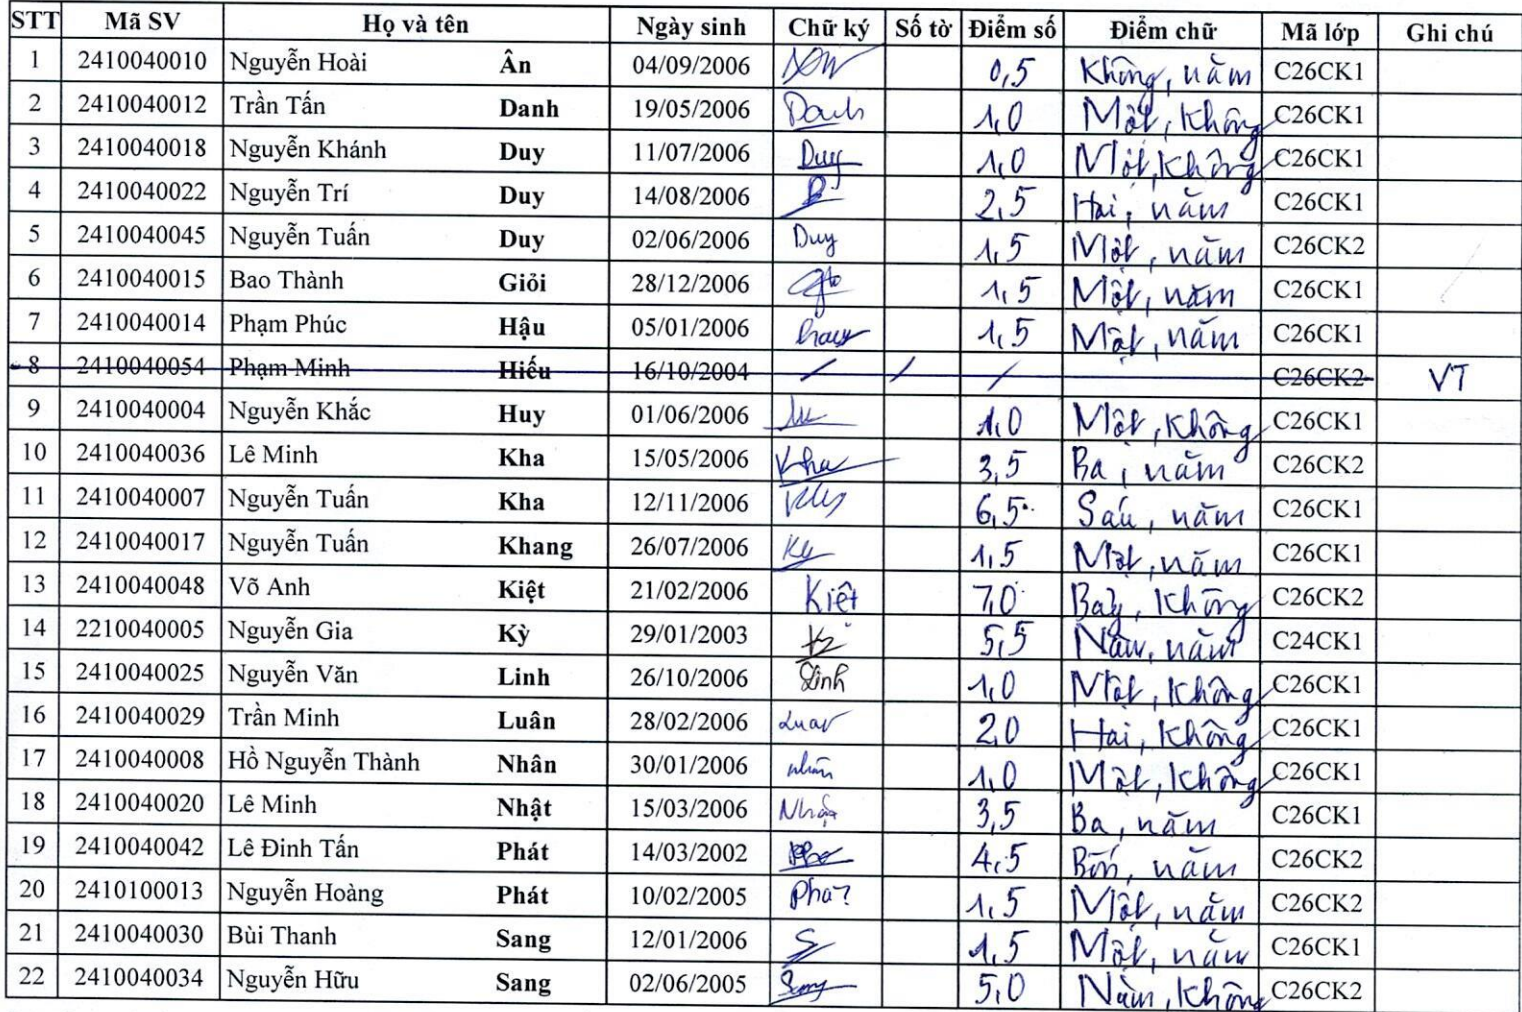 STT Mã SV Họ và tên Ngày sinh Chữ ký Số tờ Điểm số Điểm chữ Mã lớp Ghi chú
1 2410040010 Nguyễn Hoài Ân 04/09/2006 0,5 Không, năm C26CK1
2 2410040012 Trần Tấn Danh 19/05/2006 Danh 1,0 Một, Không C26CK1
3 2410040018 Nguyễn Khánh Duy 11/07/2006 Duy 1,0 Một, Không C26CK1
4 2410040022 Nguyễn Trí Duy 14/08/2006 2,5 Hai, năm C26CK1
5 2410040045 Nguyễn Tuấn Duy 02/06/2006 Duy 1,5 Một, năm C26CK2
6 2410040015 Bao Thành Giỏi 28/12/2006 1,5 Một, năm C26CK1
7 2410040014 Phạm Phúc Hậu 05/01/2006 1,5 Một, năm C26CK1
8 2410040054 Phạm Minh Hiếu 16/10/2004 C26CK2 VT
9 2410040004 Nguyễn Khắc Huy 01/06/2006 1,0 Một, Không C26CK1
10 2410040036 Lê Minh Kha 15/05/2006 Kha 3,5 Ba, năm C26CK2
11 2410040007 Nguyễn Tuấn Kha 12/11/2006 6,5 Sáu, năm C26CK1
12 2410040017 Nguyễn Tuấn Khang 26/07/2006 1,5 Một, năm C26CK1
13 2410040048 Võ Anh Kiệt 21/02/2006 Kiệt 7,0 Bảy, Không C26CK2
14 2210040005 Nguyễn Gia Kỳ 29/01/2003 5,5 Năm, năm C24CK1
15 2410040025 Nguyễn Văn Linh 26/10/2006 Linh 1,0 Một, Không C26CK1
16 2410040029 Trần Minh Luân 28/02/2006 2,0 Hai, Không C26CK1
17 2410040008 Hồ Nguyễn Thành Nhân 30/01/2006 nhân 1,0 Một, Không C26CK1
18 2410040020 Lê Minh Nhật 15/03/2006 3,5 Ba, năm C26CK1
19 2410040042 Lê Đinh Tấn Phát 14/03/2002 4,5 Bốn, năm C26CK2
20 2410100013 Nguyễn Hoàng Phát 10/02/2005 1,5 Một, năm C26CK2
21 2410040030 Bùi Thanh Sang 12/01/2006 1,5 Một, năm C26CK1
22 2410040034 Nguyễn Hữu Sang 02/06/2005 5,0 Năm, Không C26CK2